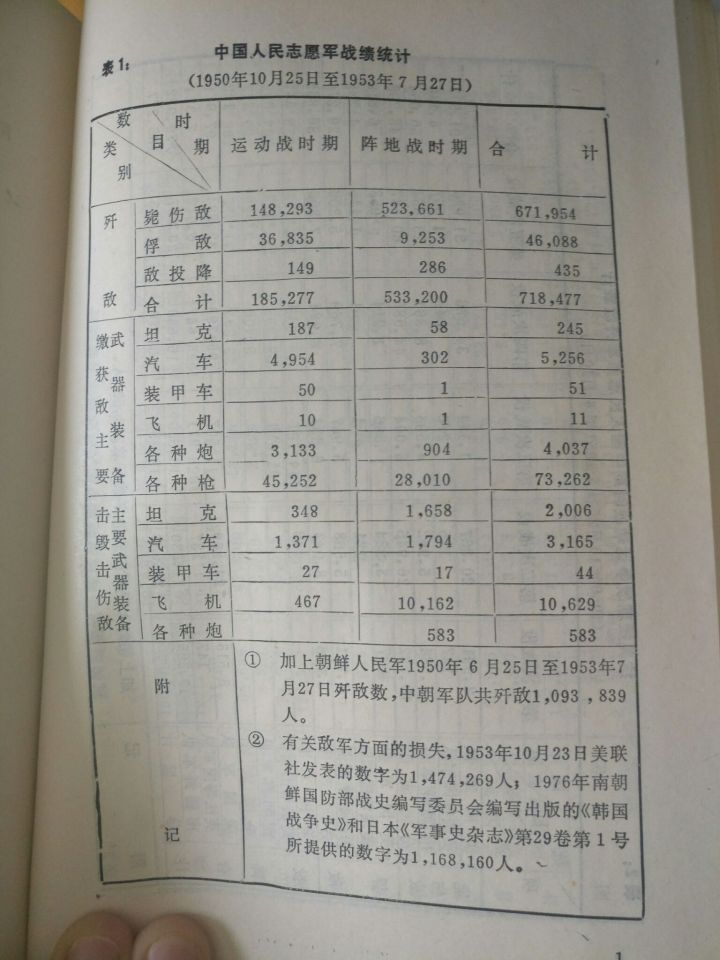 表1：
中国人民志愿军战绩统计
（1950年10月25日至1953年7月27日）
数目 时期 类别 运动战时期 阵地战时期 合计
歼敌
毙伤敌 148,293 523,661 671,954
俘敌 36,835 9,253 46,088
敌投降 149 286 435
合计 185,277 533,200 718,477
缴获敌主要武器装备
坦克 187 58 245
汽车 4,954 302 5,256
装甲车 50 1 51
飞机 10 1 11
各种炮 3,133 904 4,037
各种枪 45,252 28,010 73,262
击毁击伤敌主要武器装备
坦克 348 1,658 2,006
汽车 1,371 1,794 3,165
装甲车 27 17 44
飞机 467 10,162 10,629
各种炮 583 583
附记
① 加上朝鲜人民军1950年6月25日至1953年7
月27日歼敌数，中朝军队共歼敌1,093,839
人。
② 有关敌军方面的损失，1953年10月23日美联
社发表的数字为1,474,269人；1976年南朝
鲜国防部战史编写委员会编写出版的《韩国
战争史》和日本《军事史杂志》第29卷第1号
所提供的数字为1,168,160人。
1